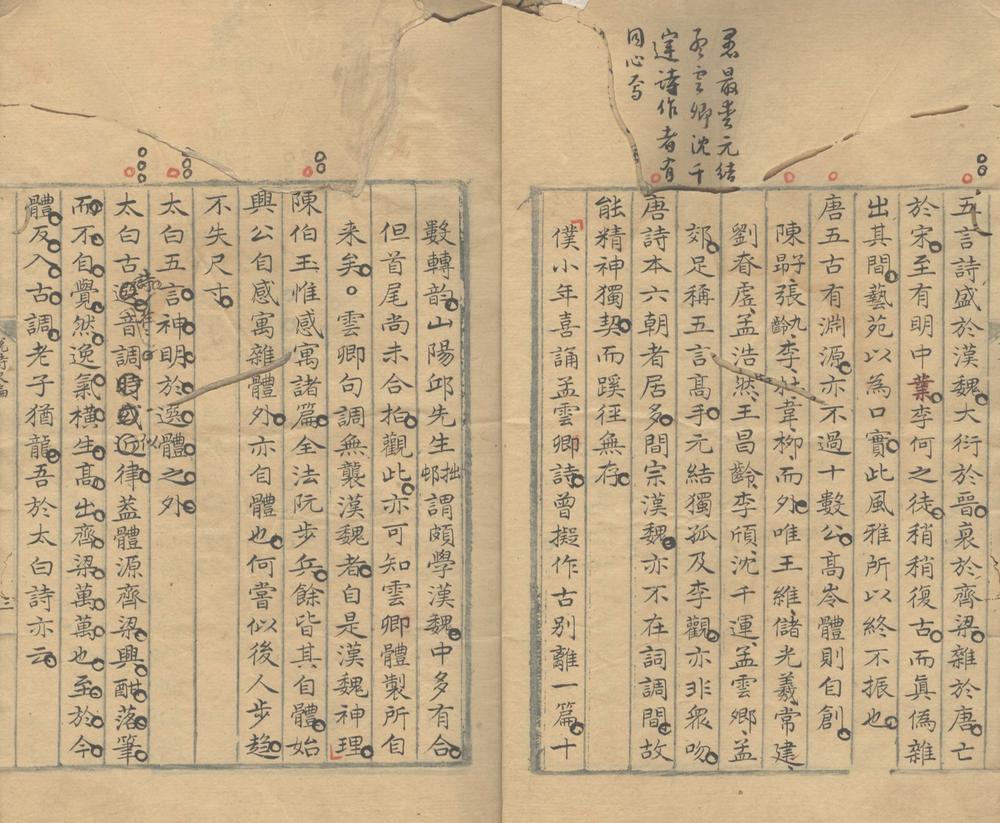 愚最愛元結
孟雲卿沈千
運詩作者有
同心焉
五言詩盛於漢魏大衍於晉衰於齊梁雜於唐亡
於宋至有明中業李何之徒稍稍復古而眞僞雜
出其間藝苑以為口實此風雅所以終不振也
唐五古有淵源亦不過十數公高岑體則自創
陳子昻張九齡李杜韋柳而外唯王維儲光羲常建
劉眘虛孟浩然王昌齡李頎沈千運孟雲卿孟
郊足稱五言高手元結獨孤及李觀亦非衆吻
唐詩本六朝者居多間宗漢魏亦不在詞調間故
能精神獨契而蹊徑無存
僕小年喜誦孟雲卿詩曾擬作古別離一篇十
數轉韵山陽邱先生邨拙謂頗學漢魏中多有合
但首尾尚未合拍觀此亦可知雲卿體製所自
来矣雲卿句調無襲漢魏者自是漢魏神理
陳伯玉惟感寓諸篇全法阮步兵餘皆其自體始
興公自感寓雜體外亦自體也何嘗似後人步趋
不失尺寸
太白五言神明於選體之外
太白古詩音調似近律葢體源齊梁興酣落筆
而不自覺然逸氣橫生高出齊梁萬萬也至於今
體反入古調老子猶龍吾於太白詩亦云